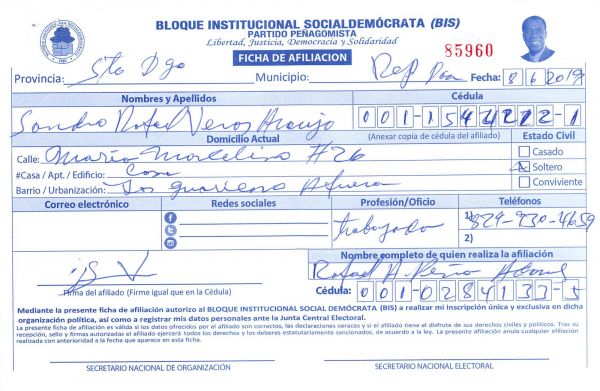 BLOQUE INSTITUCIONAL SOCIALDEMÓCRATA (BIS)
PARTIDO PEÑAGOMISTA
Libertad, Justicia, Democracia y Solidaridad
FICHA DE AFILIACION
85960
Provincia: Sto Dgo Municipio: Rep Dom Fecha: 8 6 2019
Nombres y Apellidos Cédula
Rafael Araujo 001-1544212-1
Domicilio Actual (Anexar copia de cédula del afiliado) Estado Civil
Calle: Maria Marcelino #26 Casado
#Casa / Apt. / Edificio: Casa Soltero
Barrio / Urbanización: Los Afuera Conviviente
Correo electrónico Redes sociales Profesión/Oficio Teléfonos
trabajado 1) 829-930-4659
2)
Nombre completo de quien realiza la afiliación
Rafael A. Peña
Firma del afiliado (Firme igual que en la Cédula) Cédula: 001-0284133-5
Mediante la presente ficha de afiliación autorizo al BLOQUE INSTITUCIONAL SOCIAL DEMÓCRATA (BIS) a realizar mi inscripción única y exclusiva en dicha
organización política, así como a registrar mis datos personales ante la Junta Central Electoral.
La presente ficha de afiliación es válida si los datos ofrecidos por el afiliado son correctos, las declaraciones veraces y si el afiliado tiene el disfrute de sus derechos civiles y políticos. Tras su
recepción, sello y firmas autorizadas el afiliado ejercerá todos los derechos y los deberes estatutariamente sancionados, de acuerdo a la ley. La presente afiliación anula cualquier afiliación
realizada con anterioridad a la fecha que aparece en esta ficha.
SECRETARIO NACIONAL DE ORGANIZACIÓN SECRETARIO NACIONAL ELECTORAL